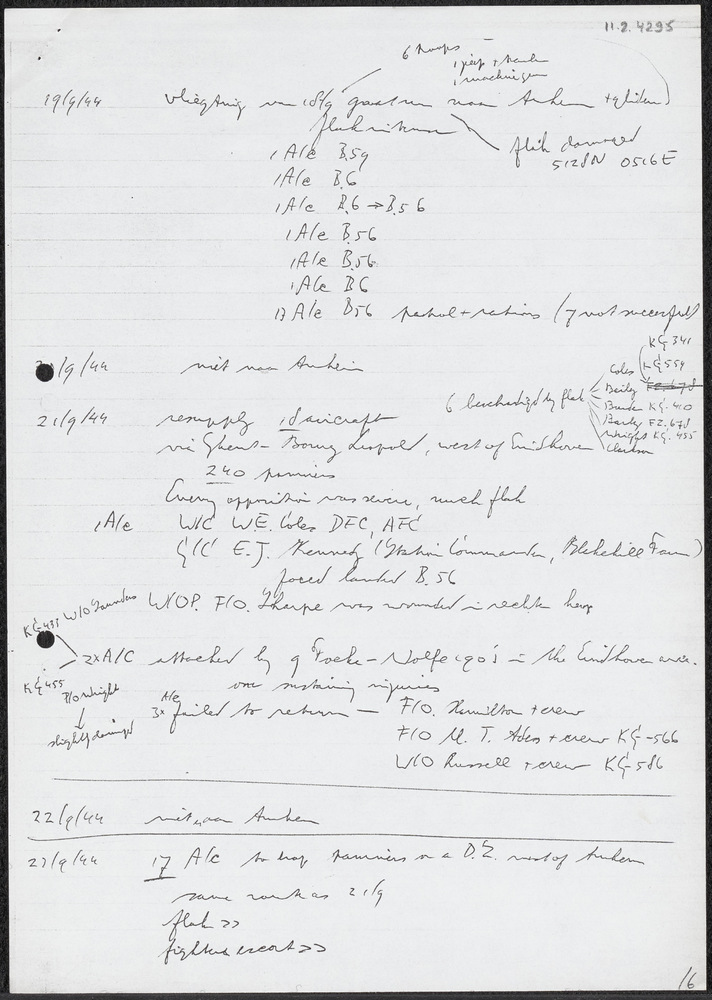 11.2.4295
6 troops
1 jeep + trailer
1 machinegun
19/9/44 vliegtuig van 18/9 gaat nu naar Arnhem + glider
flak
flak damaged
5128N 0516E
1 A/c B.59
1 A/c B.6
1 A/c B.6 → B.56
1 A/c B.56
1 A/c B.56
1 A/c B6
17 A/c B56 petrol + rations (7 not succesful)
20/9/44 niet naar Arnhem
KG 341
Coles KG 559
Bailey FZ 678
KG-410
FZ.678
Wright KG.455
Clarkson
6 beschadigd by flak
21/9/44 resupply 18 aircraft
via Ghent - Bourg Leopold, west of Eindhoven
240 panniers
Enemy opposition was severe, much flak
1 A/c W/C W.E. Coles DFC, AFC
G/C E.J. Kennedy (Station Commander, Blakehill Farm)
forced landed B.56
WOP. F/O. Tharpe was wounded in rechter heup
KG-435 W/O Saunders
2x A/C attacked by 9 Focke-Wolfe 190's in the Eindhoven area.
KG 455 P/O Wright
one sustaining injuries
slightly damaged
3x A/c failed to return — F/O. Hamilton + crew
F/O M. T. Ades + crew KG-566
W/O Russell + crew KG 586
22/9/44 niet naar Arnhem
23/9/44 17 A/c to drop panniers on a D.Z. west of Arnhem
same route as 21/9
flak >>
fighter escort >>
16